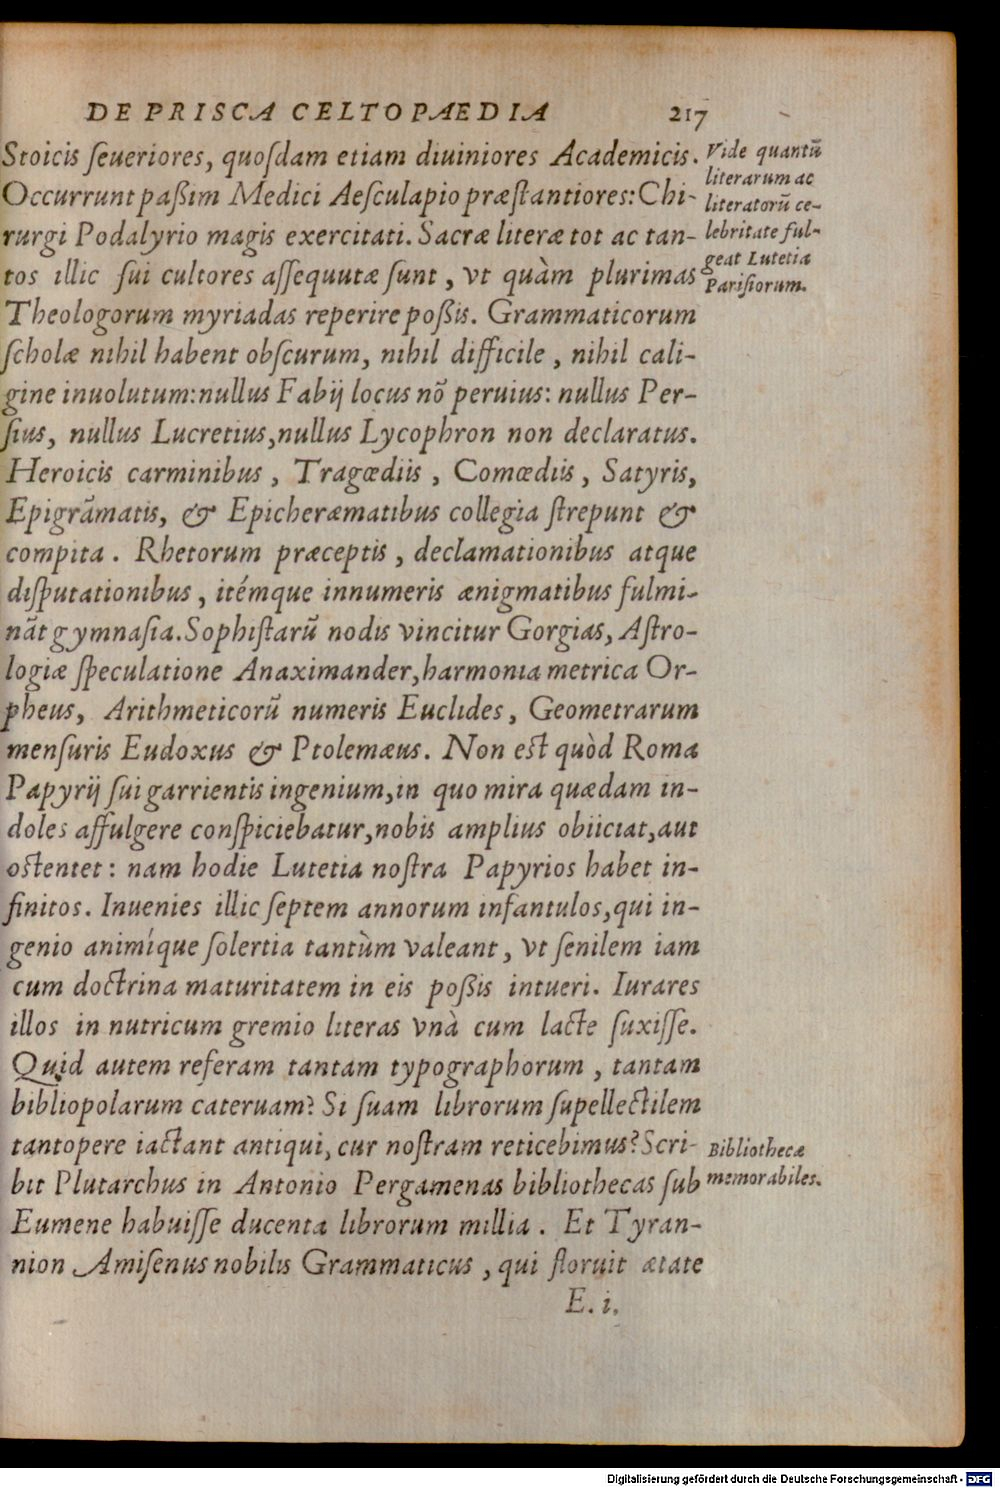 DE PRISCA CELTOPAEDIA 217
Stoicis ſeueriores, quoſdam etiam diuiniores Academicis.
Occurrunt paßim Medici Aeſculapio præſtantiores: Chi-
rurgi Podalyrio magis exercitati. Sacræ literæ tot ac tan-
tos illic ſui cultores aſſequutæ ſunt, vt quàm plurimas
Theologorum myriadas reperire poßis. Grammaticorum
ſcholæ nihil habent obſcurum, nihil difficile, nihil cali-
gine inuolutum: nullus Fabij locus nõ peruius: nullus Per-
ſius, nullus Lucretius, nullus Lycophron non declaratus.
Heroicis carminibus, Tragœdiis, Comœdiis, Satyris,
Epigrãmatis, & Epicheræmatibus collegia ſtrepunt &
compita. Rhetorum præceptis, declamationibus atque
diſputationibus, itémque innumeris ænigmatibus fulmi-
nãt gymnaſia. Sophiſtarũ nodis vincitur Gorgias, Aſtro-
logiæ ſpeculatione Anaximander, harmonia metrica Or-
pheus, Arithmeticorũ numeris Euclides, Geometrarum
menſuris Eudoxus & Ptolemæus. Non eſt quòd Roma
Papyrij ſui garrientis ingenium, in quo mira quædam in-
doles affulgere conſpiciebatur, nobis amplius obiiciat, aut
oſtentet: nam hodie Lutetia noſtra Papyrios habet in-
finitos. Inuenies illic ſeptem annorum infantulos, qui in-
genio animíque ſolertia tantùm valeant, vt ſenilem iam
cum doctrina maturitatem in eis poßis intueri. Iurares
illos in nutricum gremio literas vnà cum lacte ſuxiſſe.
Quid autem referam tantam typographorum, tantam
bibliopolarum cateruam? Si ſuam librorum ſupellectilem
tantopere iactant antiqui, cur noſtram reticebimus? Scri-
bit Plutarchus in Antonio Pergamenas bibliothecas ſub
Eumene habuiſſe ducenta librorum millia. Et Tyran-
nion Amiſenus nobilis Grammaticus, qui floruit ætate
E. i.
Vide quantũ
literarum ac
literatorũ ce-
lebritate ful-
geat Lutetia
Pariſiorum.
Bibliothecæ
memorabiles.
Digitalisierung gefördert durch die Deutsche Forschungsgemeinschaft - DFG